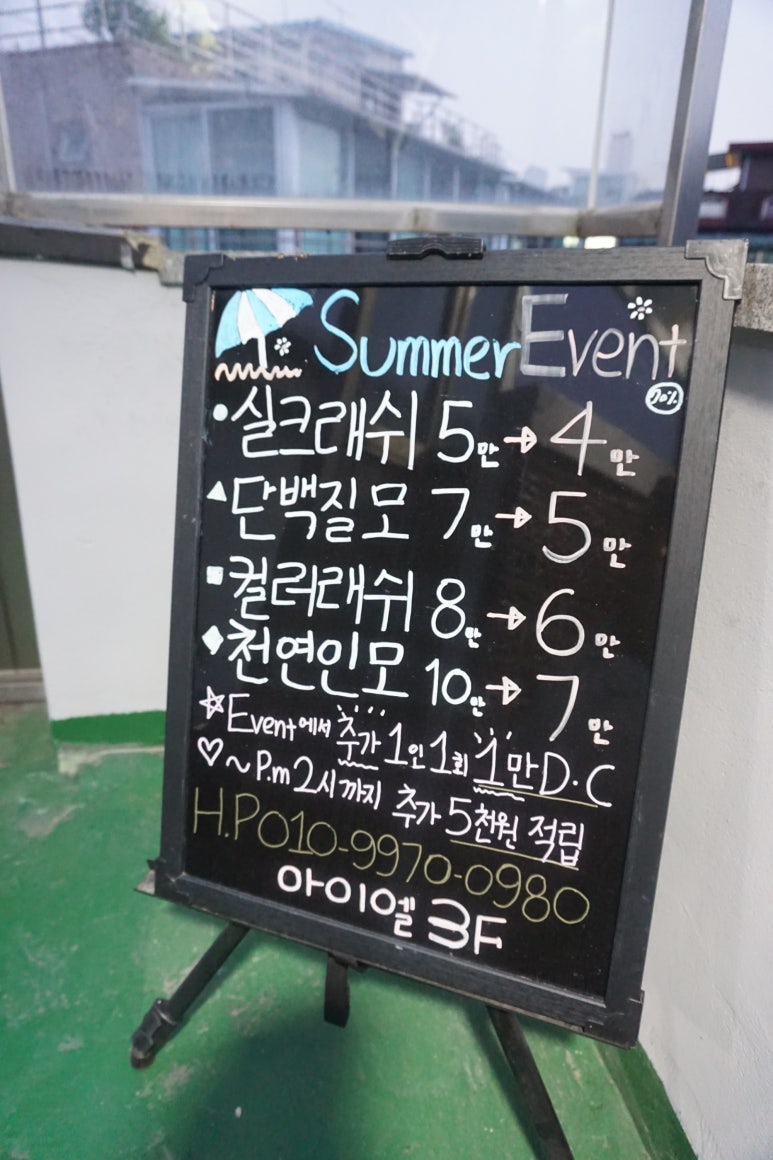 Summer Event
70%
• 실크래쉬 5만 → 4만
▲ 단백질모 7만 → 5만
■ 컬러래쉬 8만 → 6만
◆ 천연인모 10만 → 7만
☆ Event에서 추가 1인 1회 1만 D·C
♡ ~P.m 2시까지 추가 5천원 적립
H.P 010-9970-0980
아이엘 3F